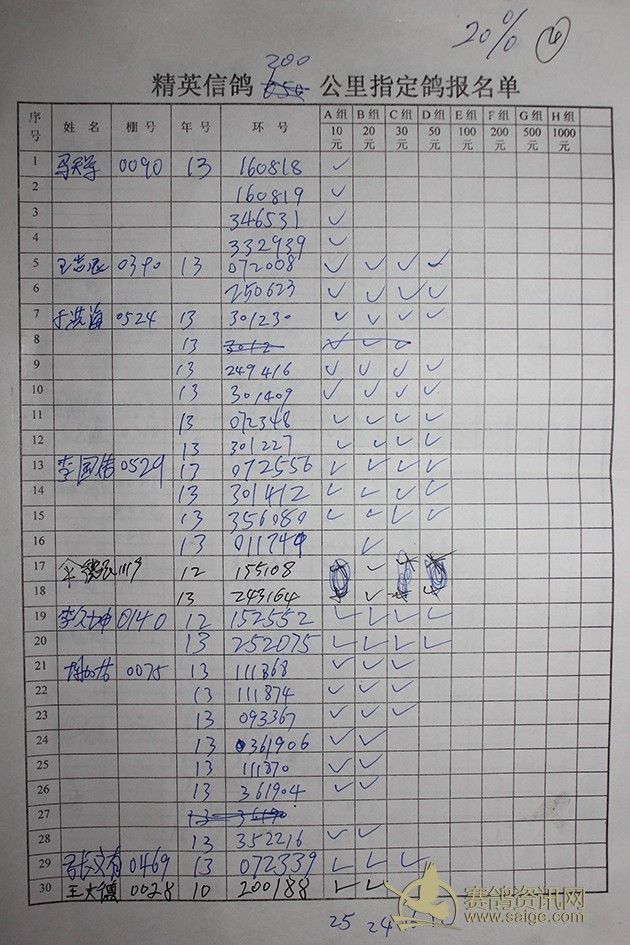 20% ④
200
精英信鸽 050 公里指定鸽报名单
序号 姓名 棚号 年号 环号 A组10元 B组20元 C组30元 D组50元 E组100元 F组200元 G组500元 H组1000元
1 0090 13 160818 ✓
2 160819 ✓
3 346531 ✓
4 332939 ✓
5 0390 13 072008 ✓ ✓ ✓ ✓
6 250623 ✓ ✓ ✓ ✓
7 于洪海 0524 13 301230 ✓ ✓ ✓ ✓
8 13 3012 ✓ ✓ ✓
9 13 249416 ✓ ✓ ✓ ✓
10 13 301409 ✓ ✓ ✓ ✓
11 13 072348 ✓ ✓ ✓ ✓
12 13 301227 ✓ ✓ ✓ ✓
13 李国信 0529 13 072556 ✓ ✓ ✓ ✓
14 13 301412 ✓ ✓ ✓ ✓
15 13 356080 ✓ ✓ ✓ ✓
16 13 011744 ✓
17 1119 12 155108 ✓
18 13 243164 ✓
19 李久坤 0140 12 152552 ✓ ✓ ✓ ✓
20 13 252075 ✓ ✓ ✓ ✓
21 0075 13 111868 ✓ ✓ ✓
22 13 111874 ✓ ✓ ✓
23 13 093367 ✓ ✓ ✓
24 13 361906 ✓ ✓
25 13 111870 ✓ ✓
26 13 361904 ✓ ✓
27 13 3619
28 13 352216 ✓ ✓
29 张文有 0469 13 072339 ✓ ✓ ✓
30 王大德 0028 10 200188 ✓ ✓
25 24
赛鸽资讯网
www.saige.com